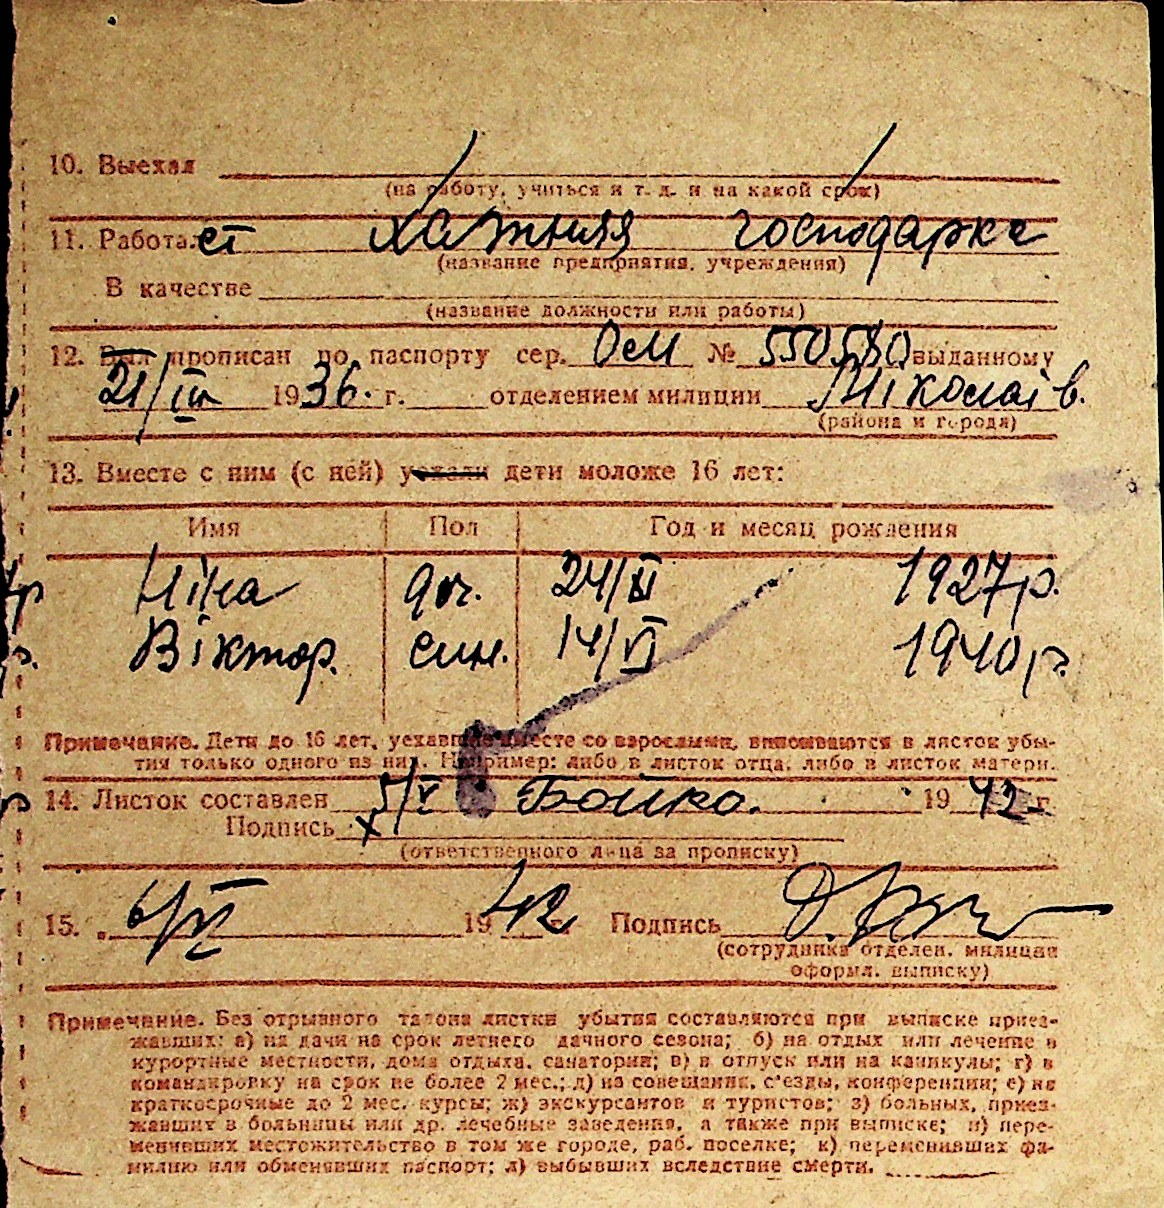 10. Выехал
(на работу, учиться и т. д. и на какой срок)
11. Работает хатняя господарка
(название предприятия, учреждения)
В качестве
(название должности или работы)
12. Был прописан по паспорту сер. Осм № 550580 выданному
21/III 1936. г. отделением милиции Міколаїв.
(района и города)
13. Вместе с ним (с ней) уехали дети моложе 16 лет:
Имя Пол Год и месяц рождения
Ніна доч. 24/III 1927 р.
Віктор. син. 14/VI 1940 р.
Примечание. Дети до 16 лет, уехавшие вместе со взрослыми, вписываются в листок убы-
тия только одного из них. Например: либо в листок отца, либо в листок матери.
14. Листок составлен 5/V Бойко. 1942 г.
Подпись х
(ответственного лица за прописку)
15. 6/VI 1942 Подпись
(сотрудника отделен. милиции
оформл. выписку)
Примечание. Без отрывного талона листки убытия составляются при выписке приез-
жавших: а) на дачи на срок летнего дачного сезона; б) на отдых или лечение в
курортные местности, дома отдыха, санатории; в) в отпуск или на каникулы; г) в
командировку на срок не более 2 мес.; д) на совещания, с'езды, конференции; е) на
краткосрочные до 2 мес. курсы; ж) экскурсантов и туристов; з) больных, приез-
жавших в больницы или др. лечебные заведения, а также при выписке; и) пере-
менивших местожительство в том же городе, раб. поселке; к) переменивших фа-
милию или обменявших паспорт; л) выбывших вследствие смерти.